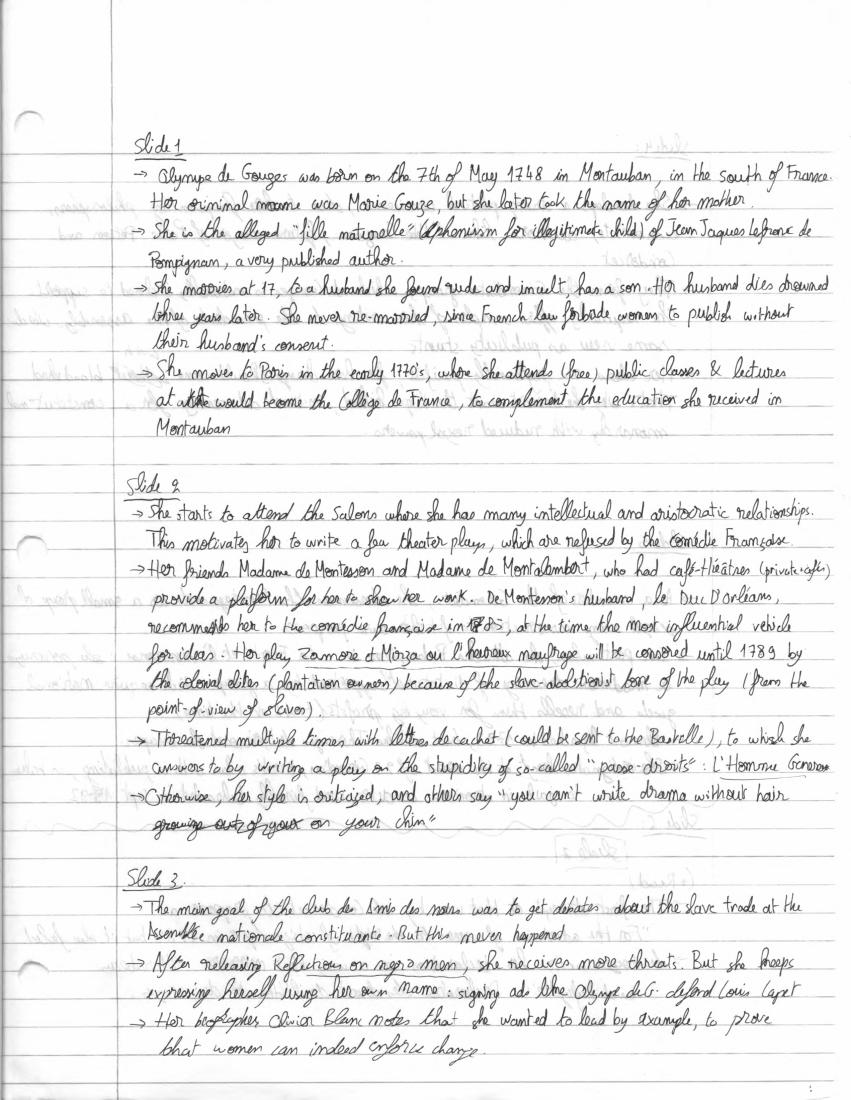 Slide 1
→ Olympe de Gouges was born on the 7th of May 1748 in Montauban, in the south of France.
Her original name was Marie Gouze, but she later took the name of her mother.
→ She is the alleged "fille naturelle" (euphemism for illegitimate child) of Jean Jaques Lefranc de
Pompignan, a very published author.
→ She marries at 17, to a husband she found rude and incult, has a son. Her husband dies drowned
three years later. She never re-married, since French law forbade women to publish without
their husband's consent.
→ She moves to Paris in the early 1770's, where she attends (free) public classes & lectures
at would become the Collège de France, to complement the education she received in
Montauban
Slide 2
→ She starts to attend the Salons where she has many intellectual and aristocratic relationships.
This motivates her to write a few theater plays, which are refused by the comédie Française.
→ Her friends Madame de Montesson and Madame de Montalembert, who had café-théâtres (private cafés)
provide a platform for her to show her work. De Montesson's husband, le Duc D'orléans,
recommends her to the comédie française in 1785, at the time the most influential vehicle
for ideas. Her play Zamore et Mirza ou l'heureux naufrage will be censored until 1789 by
the colonial elites (plantation owners) because of the slave-abolitionist tone of the play (from the
point-of-view of slaves).
→ Threatened multiple times with lettres de cachet (could be sent to the Bastille), to which she
answers to by writing a play on the stupidity of so-called "passe-droits": L'Homme Généreux
→ Otherwise, her style is criticized, and others say "you can't write drama without hair
growing out of your on your chin"
Slide 3.
→ The main goal of the club des Amis des noirs was to get debates about the slave trade at the
Assemblée nationale constituante. But this never happened
→ After releasing Reflections on negro men, she receives more threats. But she keeps
expressing herself using her own name: signing ads like Olympe de G. defend Louis Capet
→ Her biographer Olivier Blanc notes that she wanted to lead by example, to prove
that women can indeed enforce change.